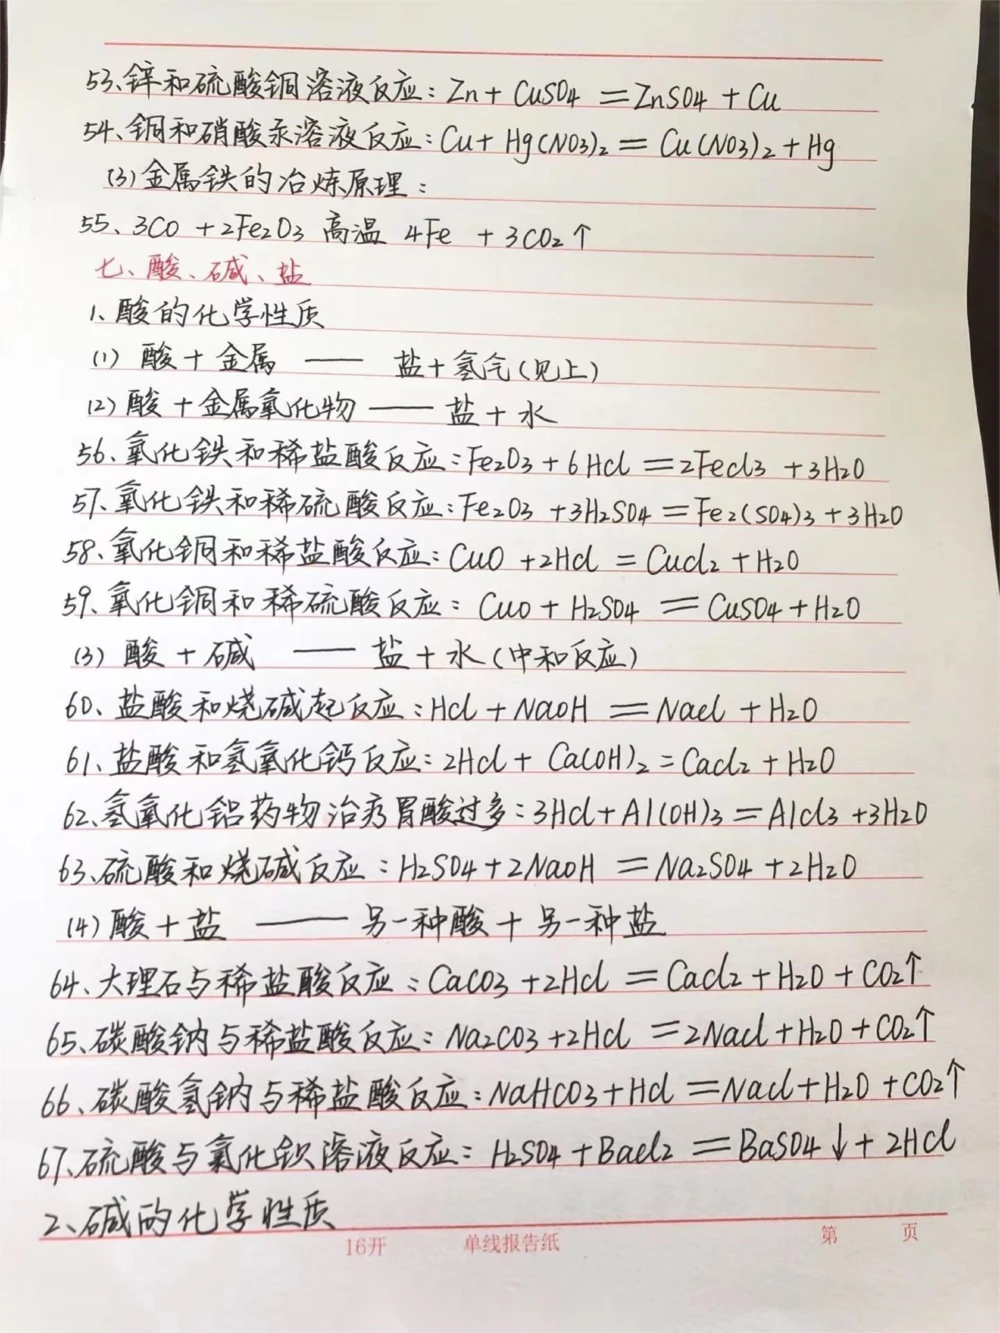 53、锌和硫酸铜溶液反应：Zn + CuSO4 = ZnSO4 + Cu
54、铜和硝酸汞溶液反应：Cu + Hg(NO3)2 = Cu(NO3)2 + Hg
(3)金属铁的冶炼原理：
55、3CO + 2Fe2O3 高温 4Fe + 3CO2↑
七、酸、碱、盐
1、酸的化学性质
(1) 酸 + 金属 —— 盐 + 氢气(见上)
(2) 酸 + 金属氧化物 —— 盐 + 水
56、氧化铁和稀盐酸反应：Fe2O3 + 6HCl = 2FeCl3 + 3H2O
57、氧化铁和稀硫酸反应：Fe2O3 + 3H2SO4 = Fe2(SO4)3 + 3H2O
58、氧化铜和稀盐酸反应：CuO + 2HCl = CuCl2 + H2O
59、氧化铜和稀硫酸反应：CuO + H2SO4 = CuSO4 + H2O
(3) 酸 + 碱 —— 盐 + 水(中和反应)
60、盐酸和烧碱起反应：HCl + NaOH = NaCl + H2O
61、盐酸和氢氧化钙反应：2HCl + Ca(OH)2 = CaCl2 + H2O
62、氢氧化铝药物治疗胃酸过多：3HCl + Al(OH)3 = AlCl3 + 3H2O
63、硫酸和烧碱反应：H2SO4 + 2NaOH = Na2SO4 + 2H2O
(4) 酸 + 盐 —— 另一种酸 + 另一种盐
64、大理石与稀盐酸反应：CaCO3 + 2HCl = CaCl2 + H2O + CO2↑
65、碳酸钠与稀盐酸反应：Na2CO3 + 2HCl = 2NaCl + H2O + CO2↑
66、碳酸氢钠与稀盐酸反应：NaHCO3 + HCl = NaCl + H2O + CO2↑
67、硫酸与氯化钡溶液反应：H2SO4 + BaCl2 = BaSO4↓ + 2HCl
2、碱的化学性质
16开 单线报告纸 第 页